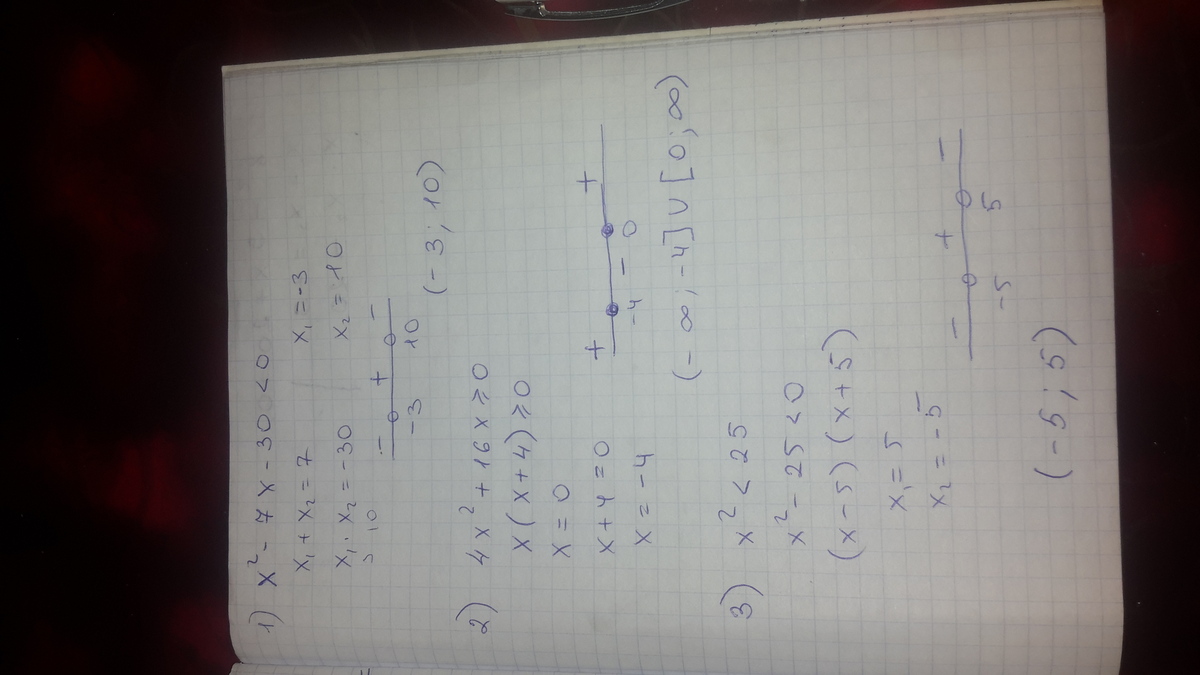 1) x² - 7x - 30 < 0
x₁ + x₂ = 7 x₁ = -3
x₁ · x₂ = -30 x₂ = 10
3 10
- + -
-3 10
(-3; 10)
2) 4x² + 16x ⩾ 0
x(x+4) ⩾ 0
x = 0
x + 4 = 0
x = -4
+ - +
-4 0
(-∞; -4] ∪ [0; ∞)
3) x² < 25
x² - 25 < 0
(x - 5)(x + 5)
x₁ = 5
x₂ = -5
- + -
-5 5
(-5; 5)